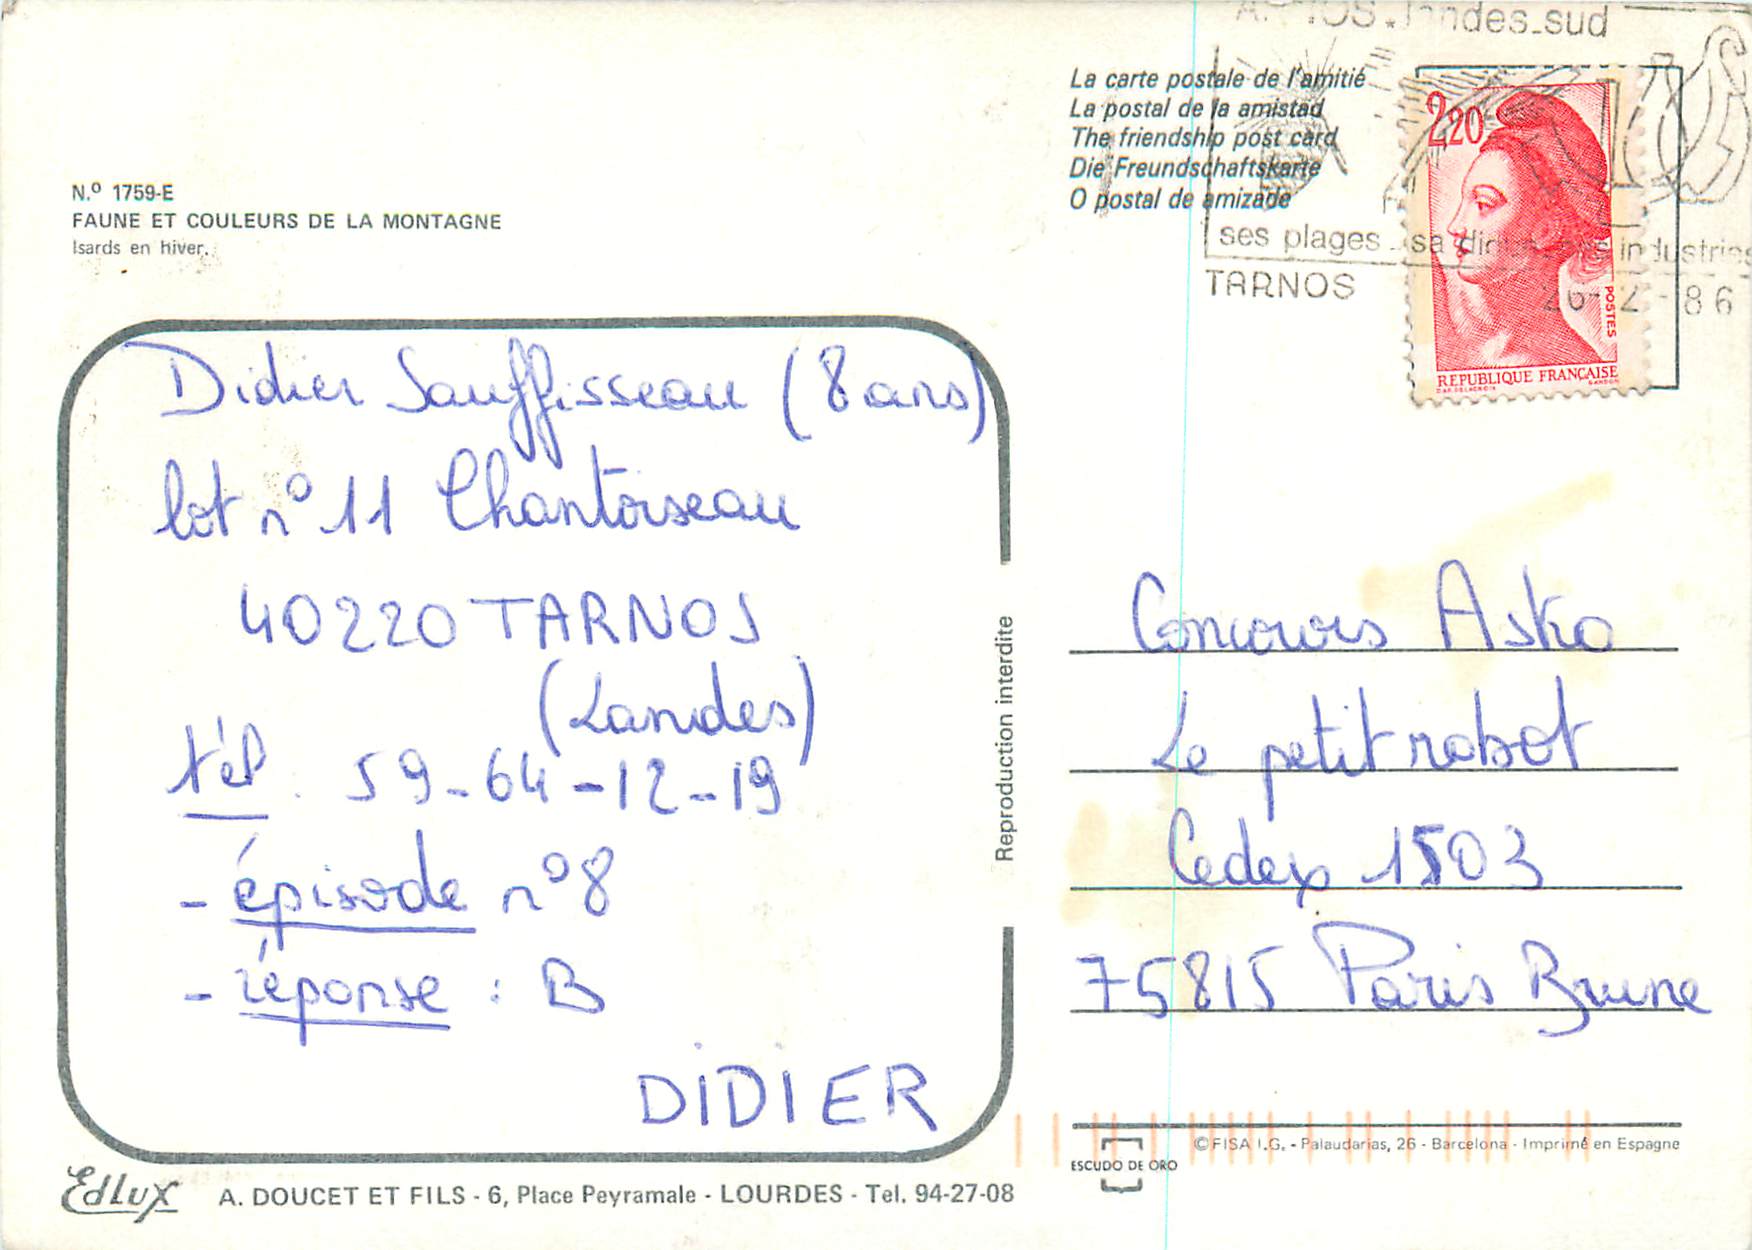 N.º 1759-E
FAUNE ET COULEURS DE LA MONTAGNE
Isards en hiver.
Didier Sauffisseau (8 ans)
lot n° 11 Chantoiseau
40220 TARNOS
(Landes)
tél. 59-64-12-19
- épisode n°8
- réponse : B
DIDIER
Edlux
A. DOUCET ET FILS - 6, Place Peyramale - LOURDES - Tel. 94-27-08
Reproduction interdite
La carte postale de l'amitié
La postal de la amistad
The friendship post card
Die Freundschaftskarte
O postal de amizade
landes.sud
ses plages . sa industries
TARNOS
86
2,20
POSTES
REPUBLIQUE FRANÇAISE
Concours Asko
Le petit robot
Cedex 1503
75815 Paris Brune
©FISA I.G. - Palaudarias, 26 - Barcelona - Imprimé en Espagne
ESCUDO DE ORO